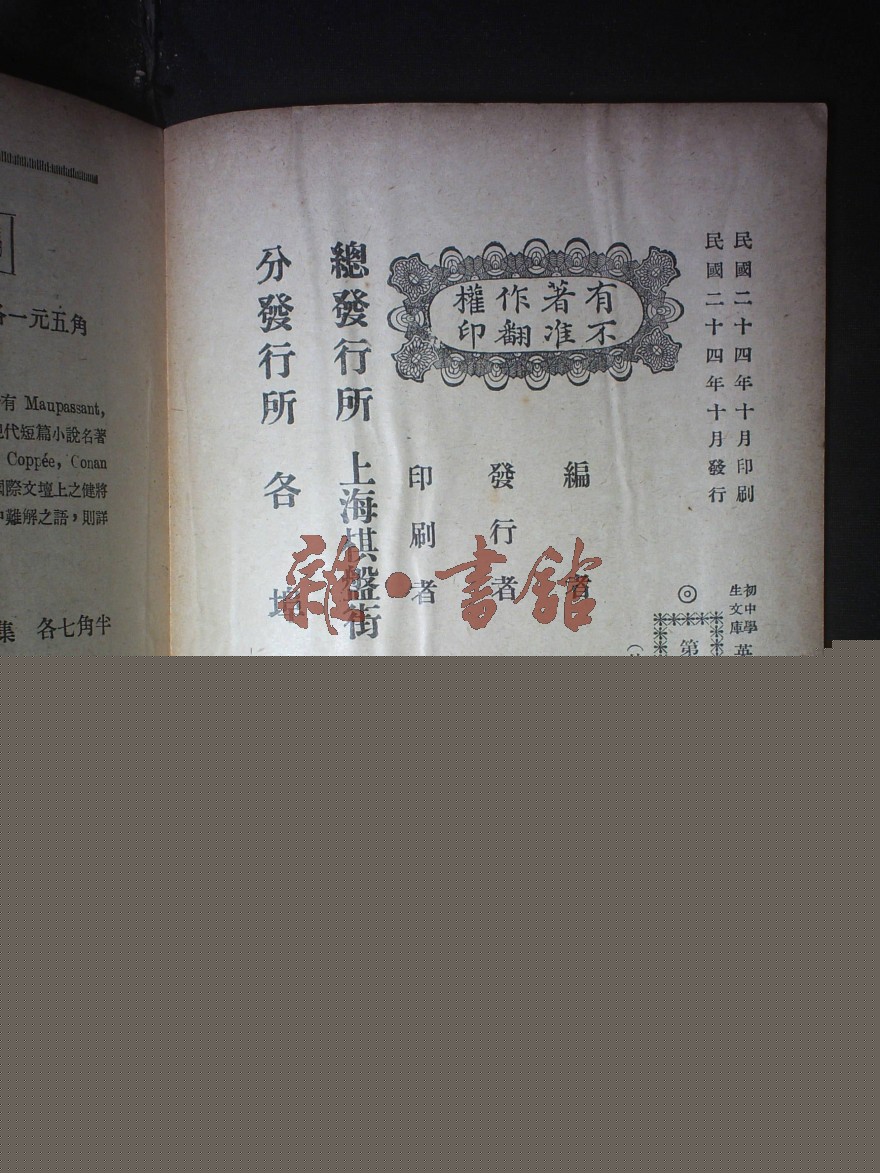 民國二十四年十月印刷
民國二十四年十月發行
初中學
生文庫
英
◎
第
有著作權
不准翻印
編者
發行者
印刷者
總發行所 上海棋盤街
分發行所 各埠
雜·書館
各一元五角
有 Maupassant,
現代短篇小說名著
Coppée, Conan
國際文壇上之健將
中難解之語，則詳
集 各七角半